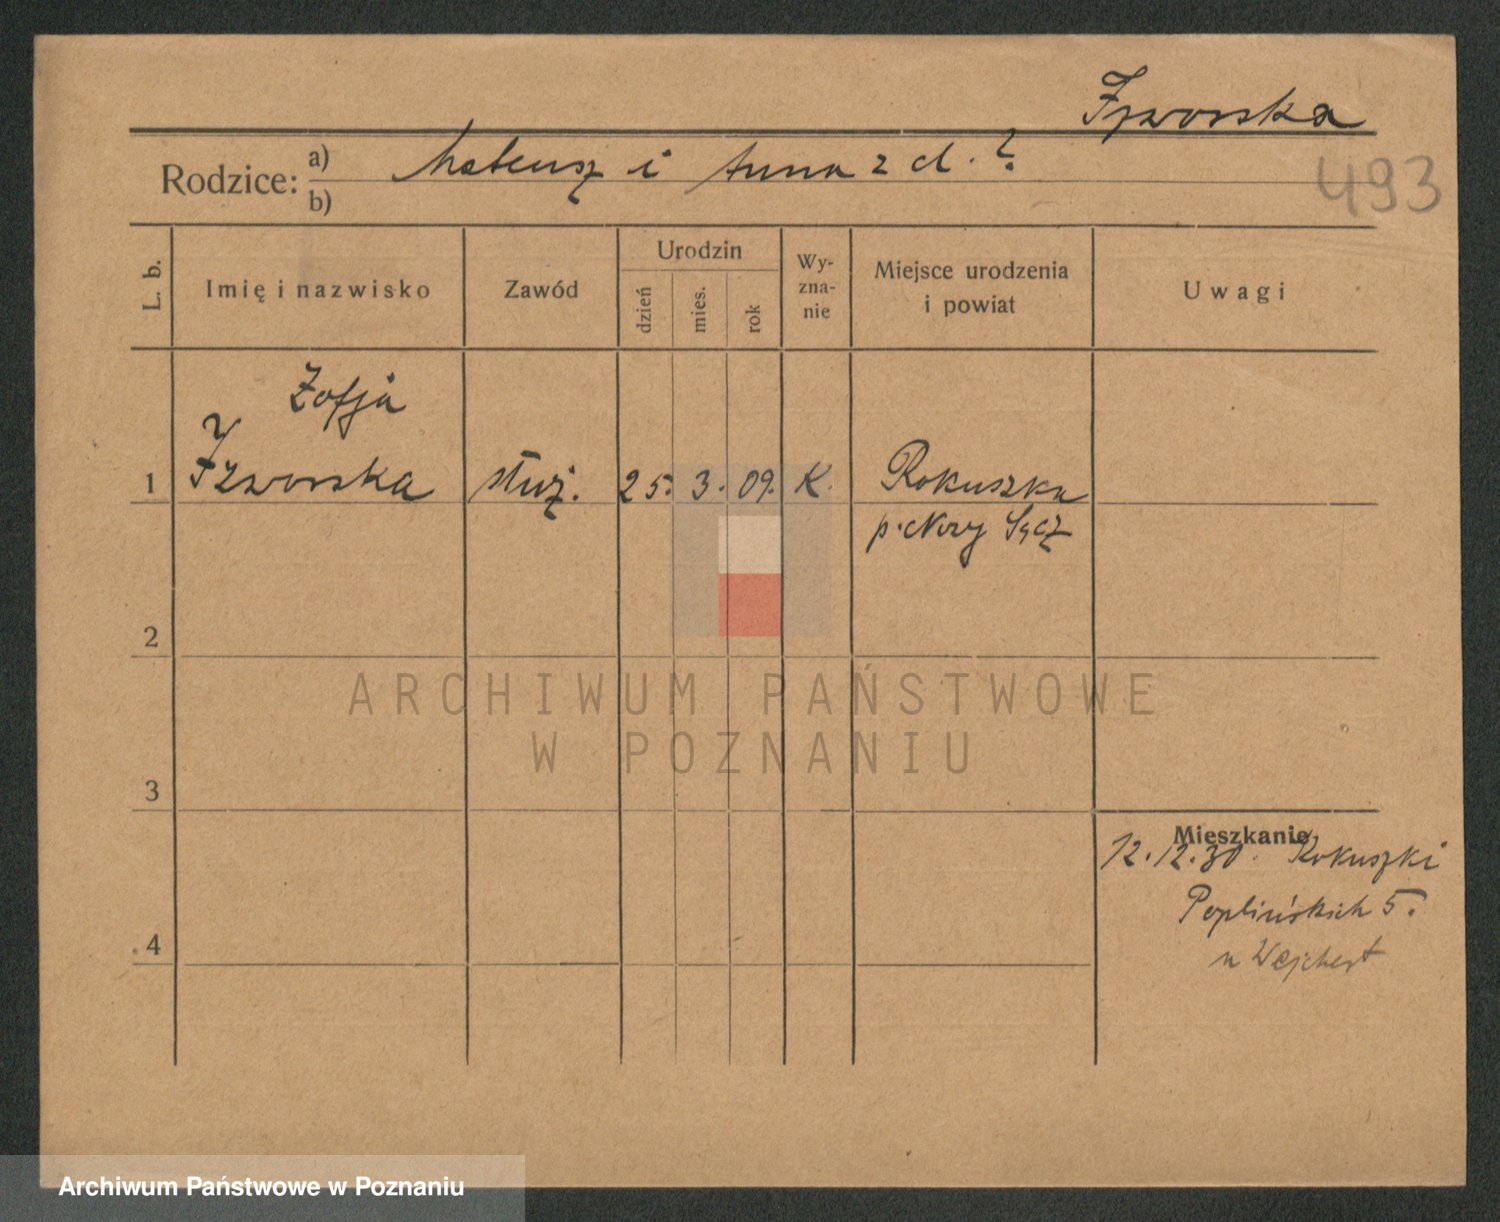 Izworska
Rodzice: a) Mateusz i Anna z d. ?
b)
493
L. b.
Imię i nazwisko
Zawód
Urodzin
dzień
mies.
rok
Wy-
zna-
nie
Miejsce urodzenia
i powiat
Uwagi
Zofja
1 Izworska służ. 25. 3. 09. K. Rokuszka
p. Nowy Sącz
2
3
4
Mieszkanie
12.12.30. Rokuszki
Poplińskich 5.
u Wejchert
ARCHIWUM PAŃSTWOWE
W POZNANIU
Archiwum Państwowe w Poznaniu